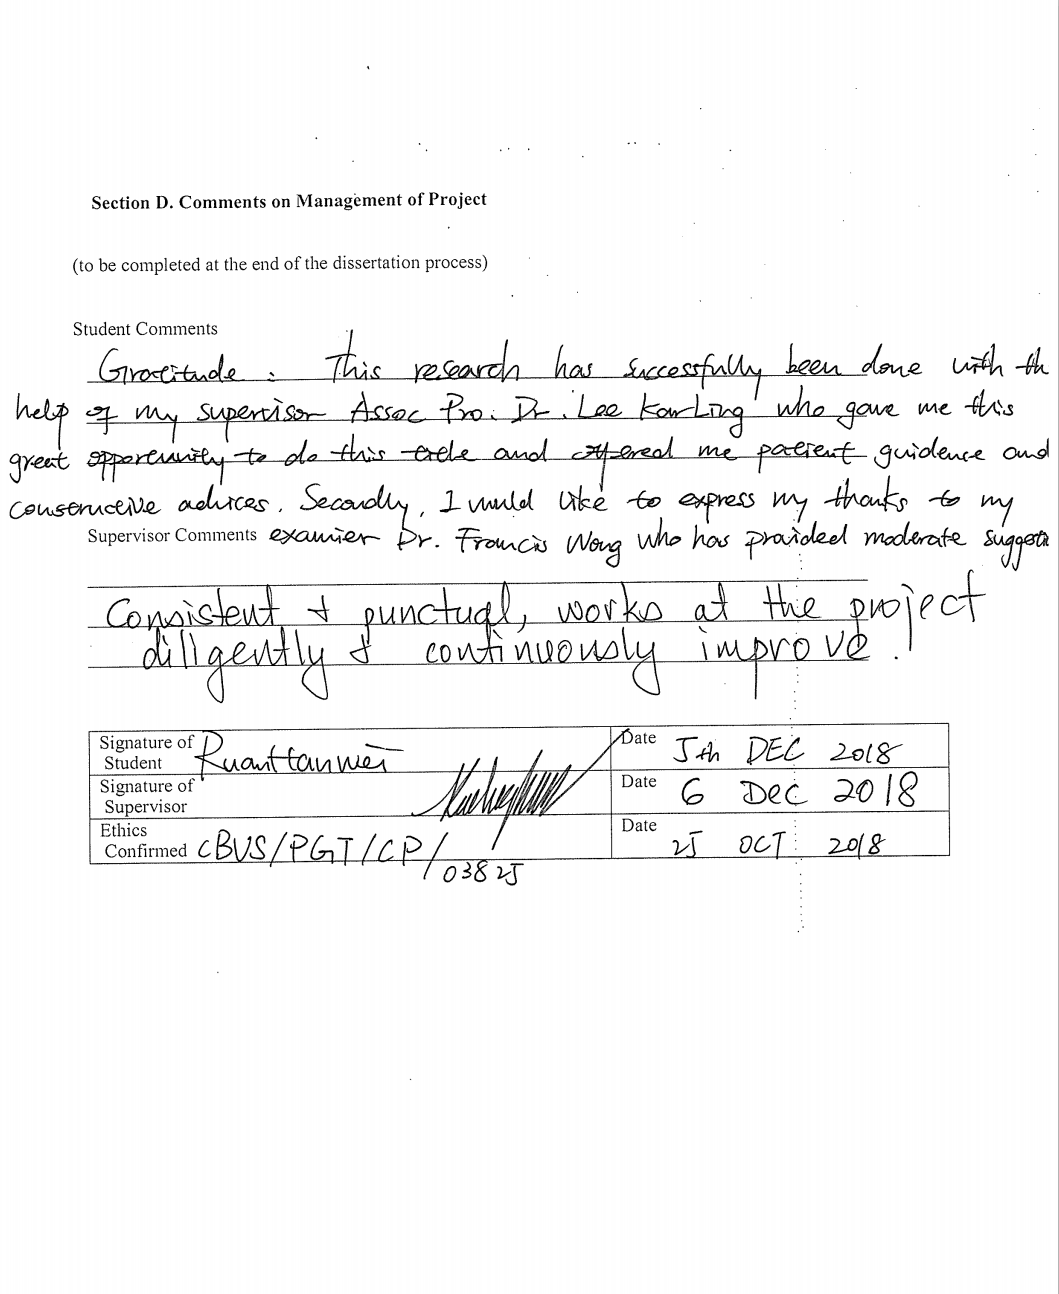 Section D. Comments on Management of Project
(to be completed at the end of the dissertation process)
Student Comments
Gratitude : This research has successfully been done with th
help of my supervisor Assoc Pro. Dr. Lee Kar Ling who gave me this
great opportunity to do this and offered me patient guidence and
constructive advices. Secondly, I would like to express my thanks to my
Supervisor Comments examier Dr. Francis Wong who has provided moderate suggesti
Consistent & punctual, works at the project
diligently & continuously improve.
Signature of Student Date 5th DEC 2018
Signature of Supervisor Date 6 Dec 2018
Ethics Confirmed CBUS/PGT/CP/03825 Date 25 OCT 2018